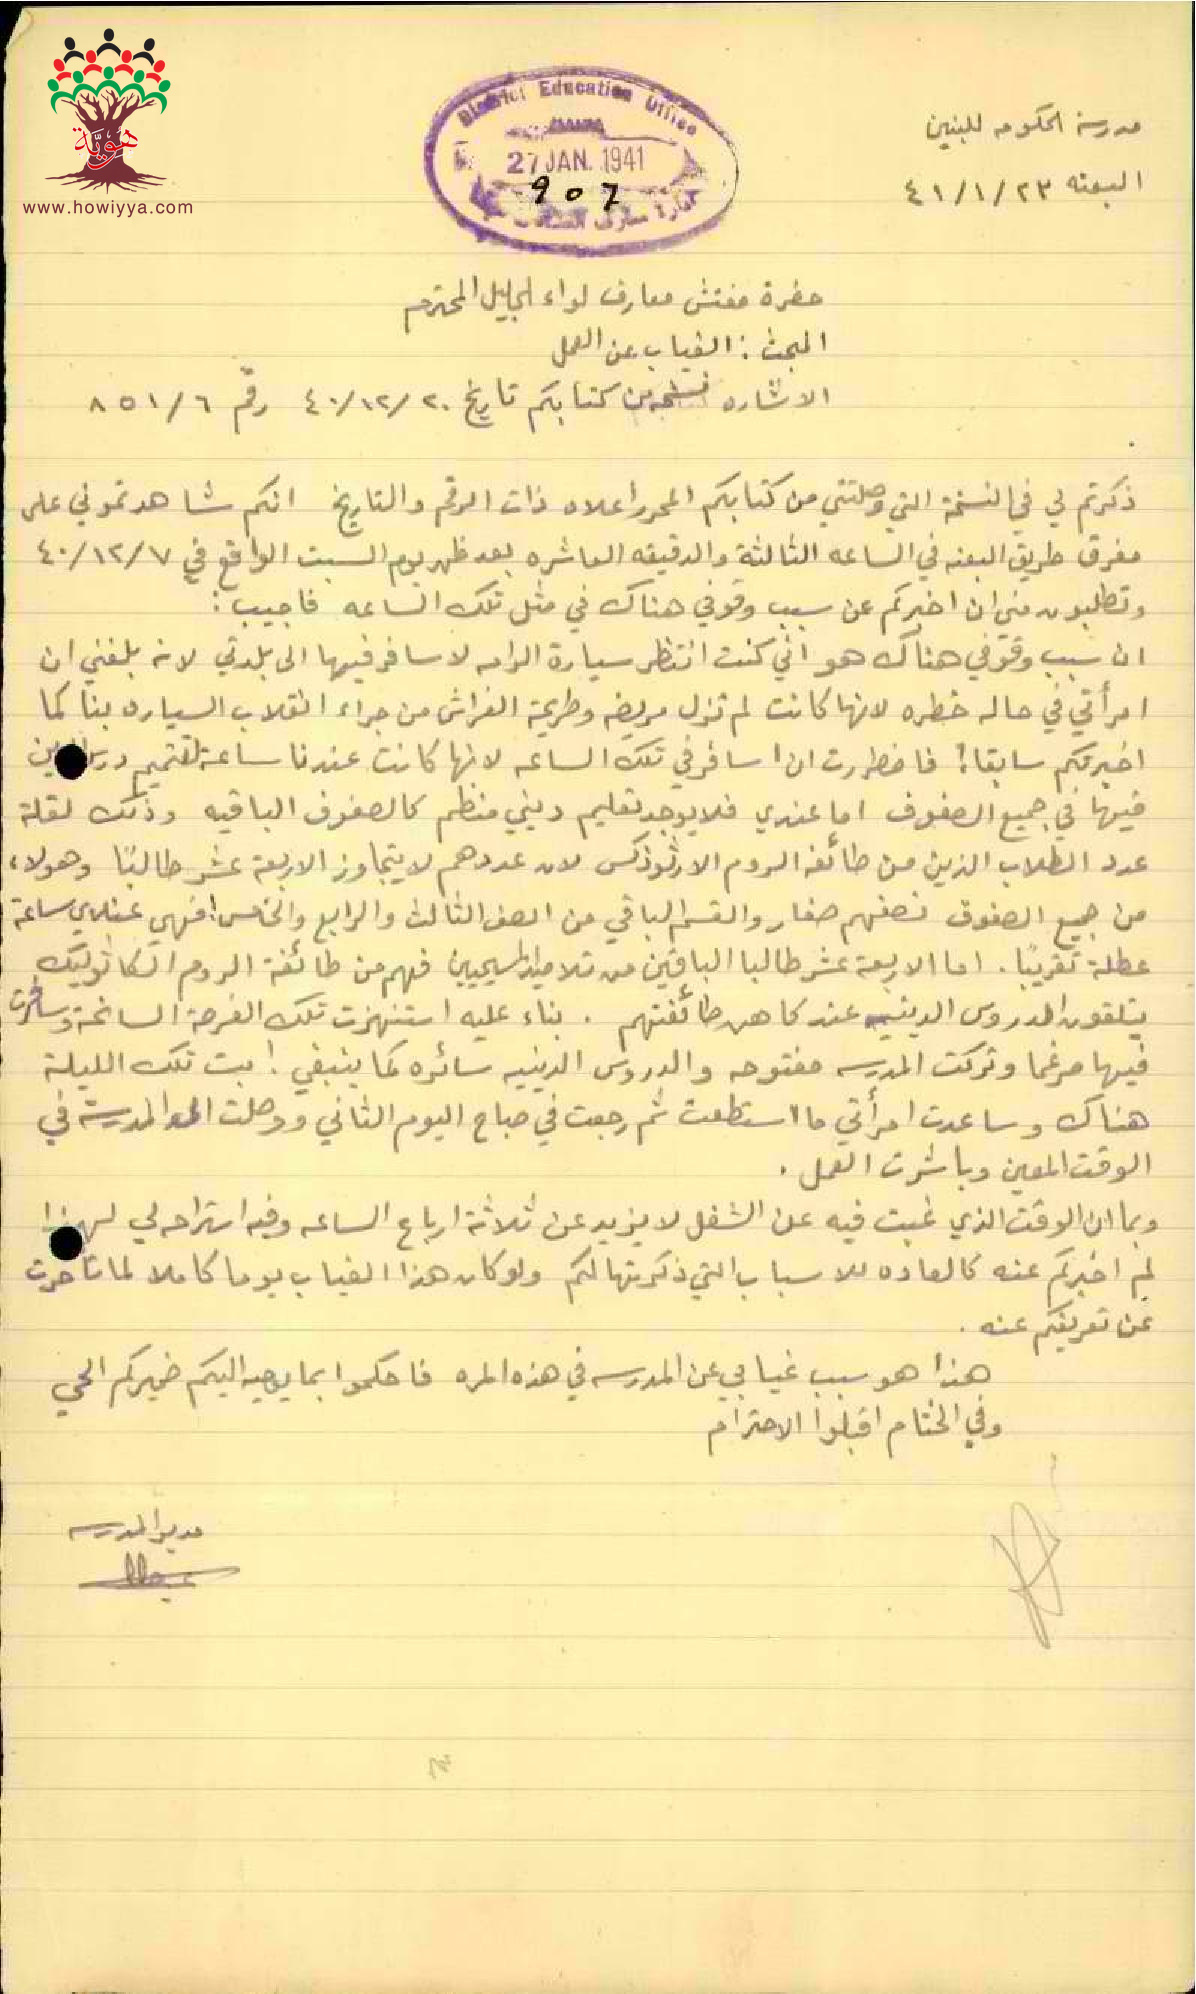 هويّة
www.howiyya.com
District Education Office
27 JAN. 1941
907
مدرسة الحكومه للبنين
البعنه ٤١/١/٢٣
حضرة مفتش معارف لواء الجليل المحترم
المبحث : الغياب عن العمل
الاشاره نسخه من كتابكم تاريخ ٤٠/١٢/٢٠ رقم ٨٥١/٦
ذكرتم لي في النسخة التي وصلتني من كتابكم المحرر اعلاه ذات الرقم والتاريخ انكم شاهدتموني على
مفرق طريق البعنه في الساعه الثالثة والدقيقه العاشره بعد ظهر يوم السبت الواقع في ٤٠/١٢/٧
وتطلبون مني ان اخبركم عن سبب وقوفي هناك في مثل تلك الساعه فاجيب :
ان سبب وقوفي هناك هو اني كنت انتظر سيارة الرامه لاسافر فيها الى بلدتي لانه بلغني ان
امرأتي في حاله خطره لانها كانت لم تزل مريضه وطريحة الفراش من جراء انقلاب السياره بنا كما
اخبرتكم سابقا! فاضطررت ان اسافر في تلك الساعه لانها كانت عندنا ساعة تتميم درس الدين
فيها في جميع الصفوف اما عندي فلا يوجد تعليم ديني منظم كالصفوف الباقيه وذلك لقلة
عدد الطلاب الذين من طائفة الروم الارثوذكس لان عددهم لا يتجاوز الاربعة عشر طالبًا وهولاء
من جميع الصفوف نصفهم صغار والقسم الباقي من الصف الثالث والرابع والخامس! فهي عندي ساعة
عطلة تقريبًا . اما الاربعة عشر طالبا الباقين من تلاميذ المسيحيين فهم من طائفة الروم الكاثوليك
يتلقون الدروس الدينيه عند كاهن طائفتهم . بناء عليه استنهزت تلك الفرصة السانحة وسافرت
فيها مرغما وتركت المدرسه مفتوحه والدروس الدينيه سائره كما ينبغي ! بت تلك الليلة
هناك وساعدت امرأتي ما استطعت ثم رجعت في صباح اليوم الثاني ووصلت المدرسة في
الوقت المعين وباشرت العمل .
وبما ان الوقت الذي غبت فيه عن الشغل لا يزيد عن ثلاثة ارباع الساعه وفيه استراحه لي لهذا
لم اخبركم عنه كالعاده للاسباب التي ذكرتها لكم ولو كان هذا الغياب يوما كاملا لما تأخرت
عن تعريفكم عنه .
هذا هو سبب غيابي عن المدرسه في هذه المره فاحكموا بما يوحيه اليكم ضميركم الحي
وفي الختام اقبلوا الاحترام
مدير المدرسه